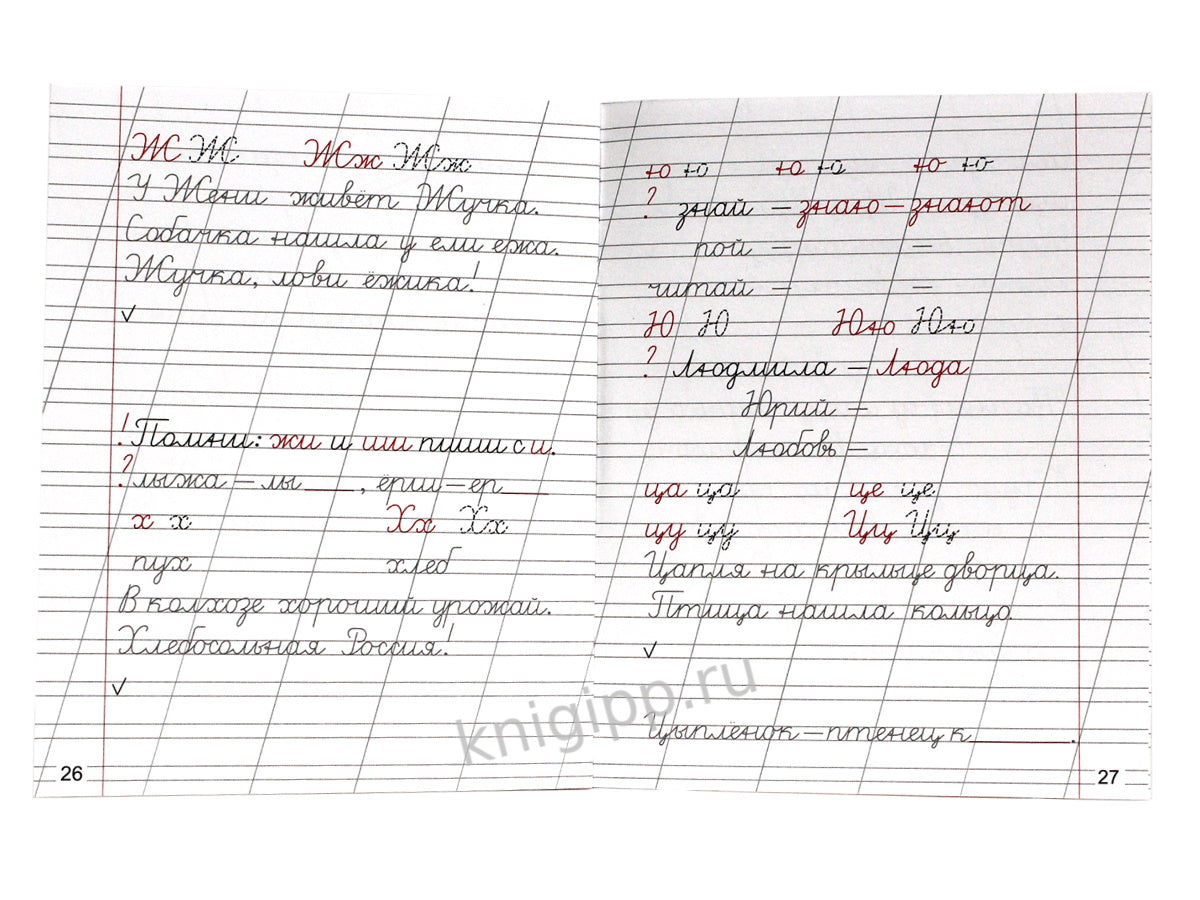 Ж Ж Жж Жж
У Жени живёт Жучка.
Собачка нашла у ели ежа.
Жучка, лови ёжика!
✓
! Помни: жи и ши пиши с и.
? лыжа – лы____, ёрш – ер____
х х Хх Хх
пух хлеб
В колхозе хороший урожай.
Хлебосольная Россия!
✓
26
ю ю ю ю ю ю
? знай – знаю – знают
пой – –
читай – –
Ю Ю Юю Юю
? Людмила – Люда
Юрий –
Любовь –
ца ца це це
цу цу Цц Цц
Цапля на крыльце дворца.
Птица нашла кольцо.
✓
Цыплёнок – птенец к________.
27
knigipp.ru